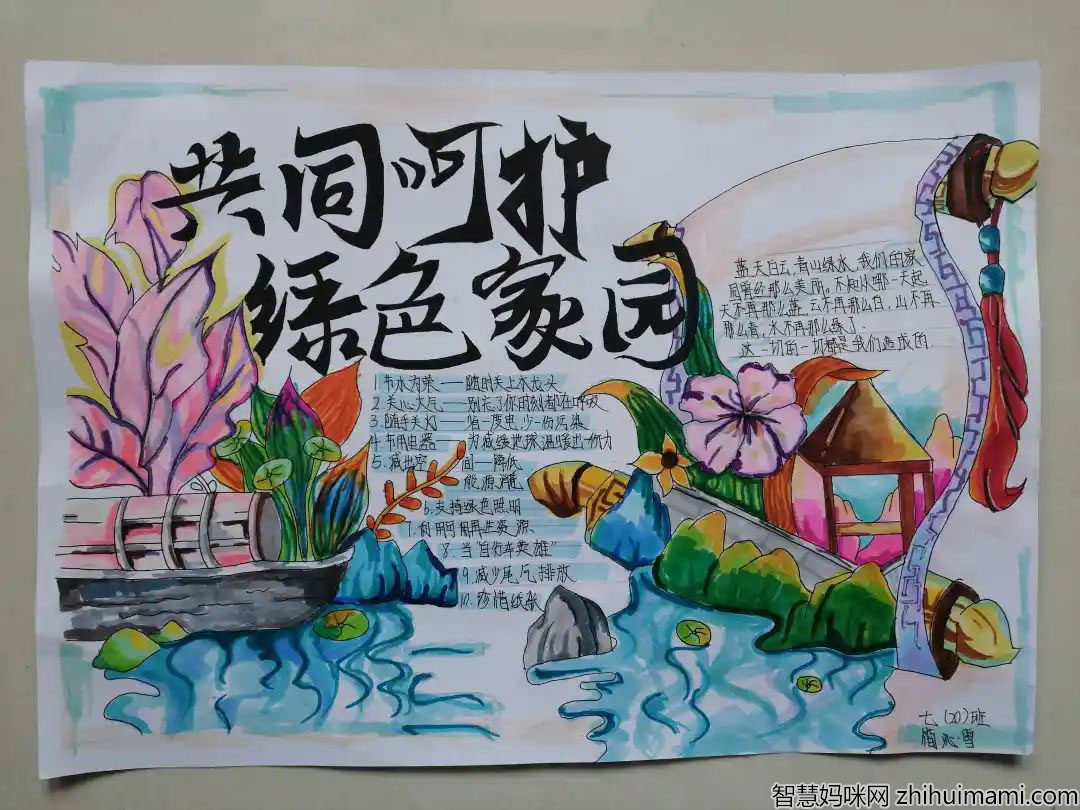 共同呵护
绿色家园
蓝天白云,青山绿水,我们的家
园曾经那么美丽。不知从哪一天起
天不再那么蓝,云不再那么白,山不再
那么青,水不再那么绿了.
这一切的一切都是我们造成的.
1.节水为荣——随时关上水龙头
2.关心大气——别忘了你时刻都在呼吸
3.随手关灯——省一度电,少一份污染
4.节用电器——为减缓地球温暖出一份力
5.减出空 间——降低
能源消耗
6.支持绿色照明
7.利用可再生资源、
8.当“自行车英雄”
9.减少尾气排放
10.珍惜纸张
七(20)班
沁雪
智慧妈咪网 zhihuimami.com